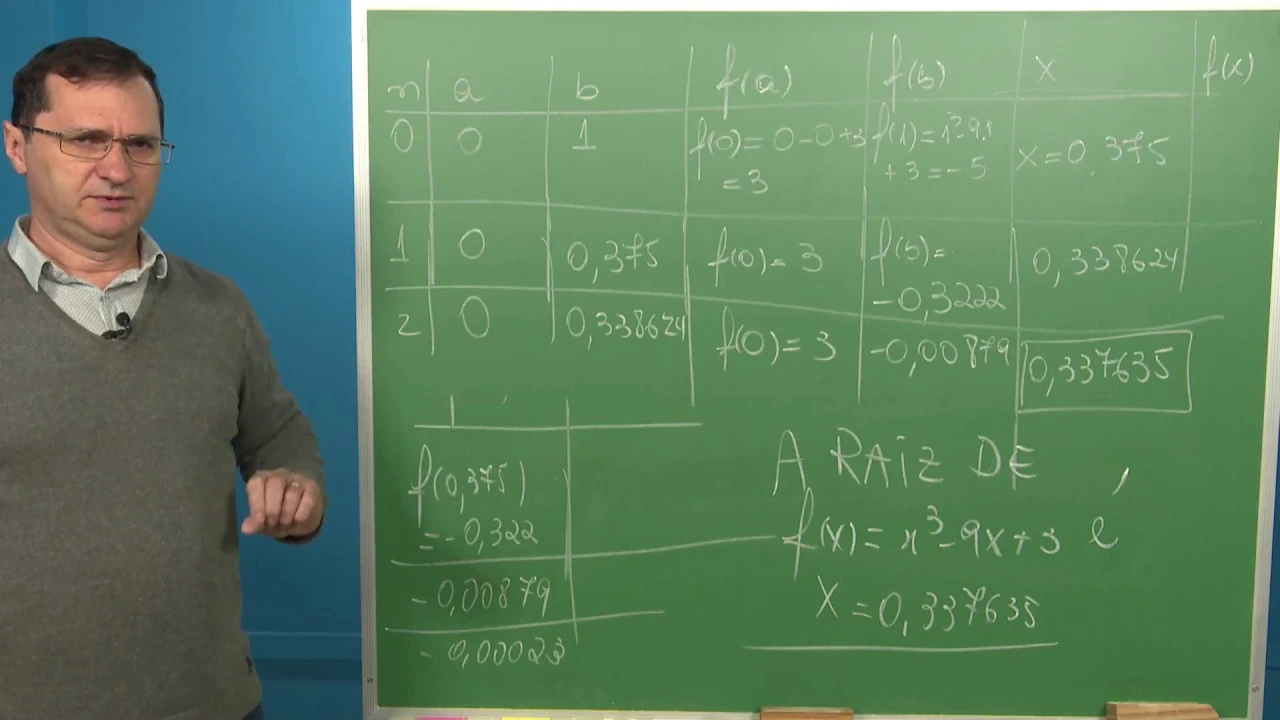 n a b f(a) f(b) x f(x)
0 0 1 f(0)=0-0+3 f(1)=1³-9.1 x=0,375
=3 +3=-5
1 0 0,375 f(0)=3 f(b)= 0,338624
-0,3222
2 0 0,338624 f(0)=3 -0,00879 0,337635
f(0,375)
=-0,322
-0,00879
-0,00023
A RAIZ DE
f(x)=x³-9x+3 é
X=0,337635